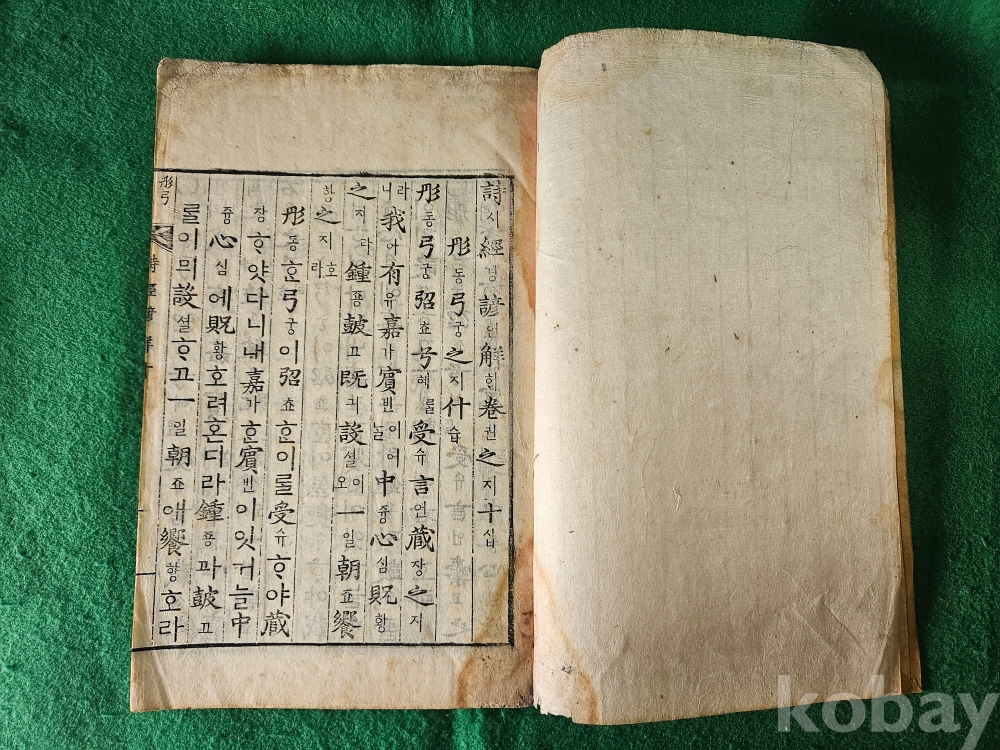 詩시經경諺언解ᄒᆡ卷권之지十십
彤동弓궁之지什습
彤동弓궁弨쵸兮혜ᄅᆞᆯ受슈言언藏장之지
라니我아有유嘉가賓빈이어ᄂᆞᆯ中즁心심貺황
之지라鍾죵鼓고旣긔設셜이오一일朝죠饗
향之지호라
彤동ᄒᆞᆫ弓궁이弨쵸ᄒᆞᆫ이ᄅᆞᆯ受슈ᄒᆞ야藏
장ᄒᆞ얏다니내嘉가ᄒᆞᆫ賓빈이잇거늘中
즁心심에貺황호려혼디라鍾죵과鼓고
ᄅᆞᆯ이믜設셜ᄒᆞ고一일朝죠애饗향호라
彤弓
詩經諺解
kobay